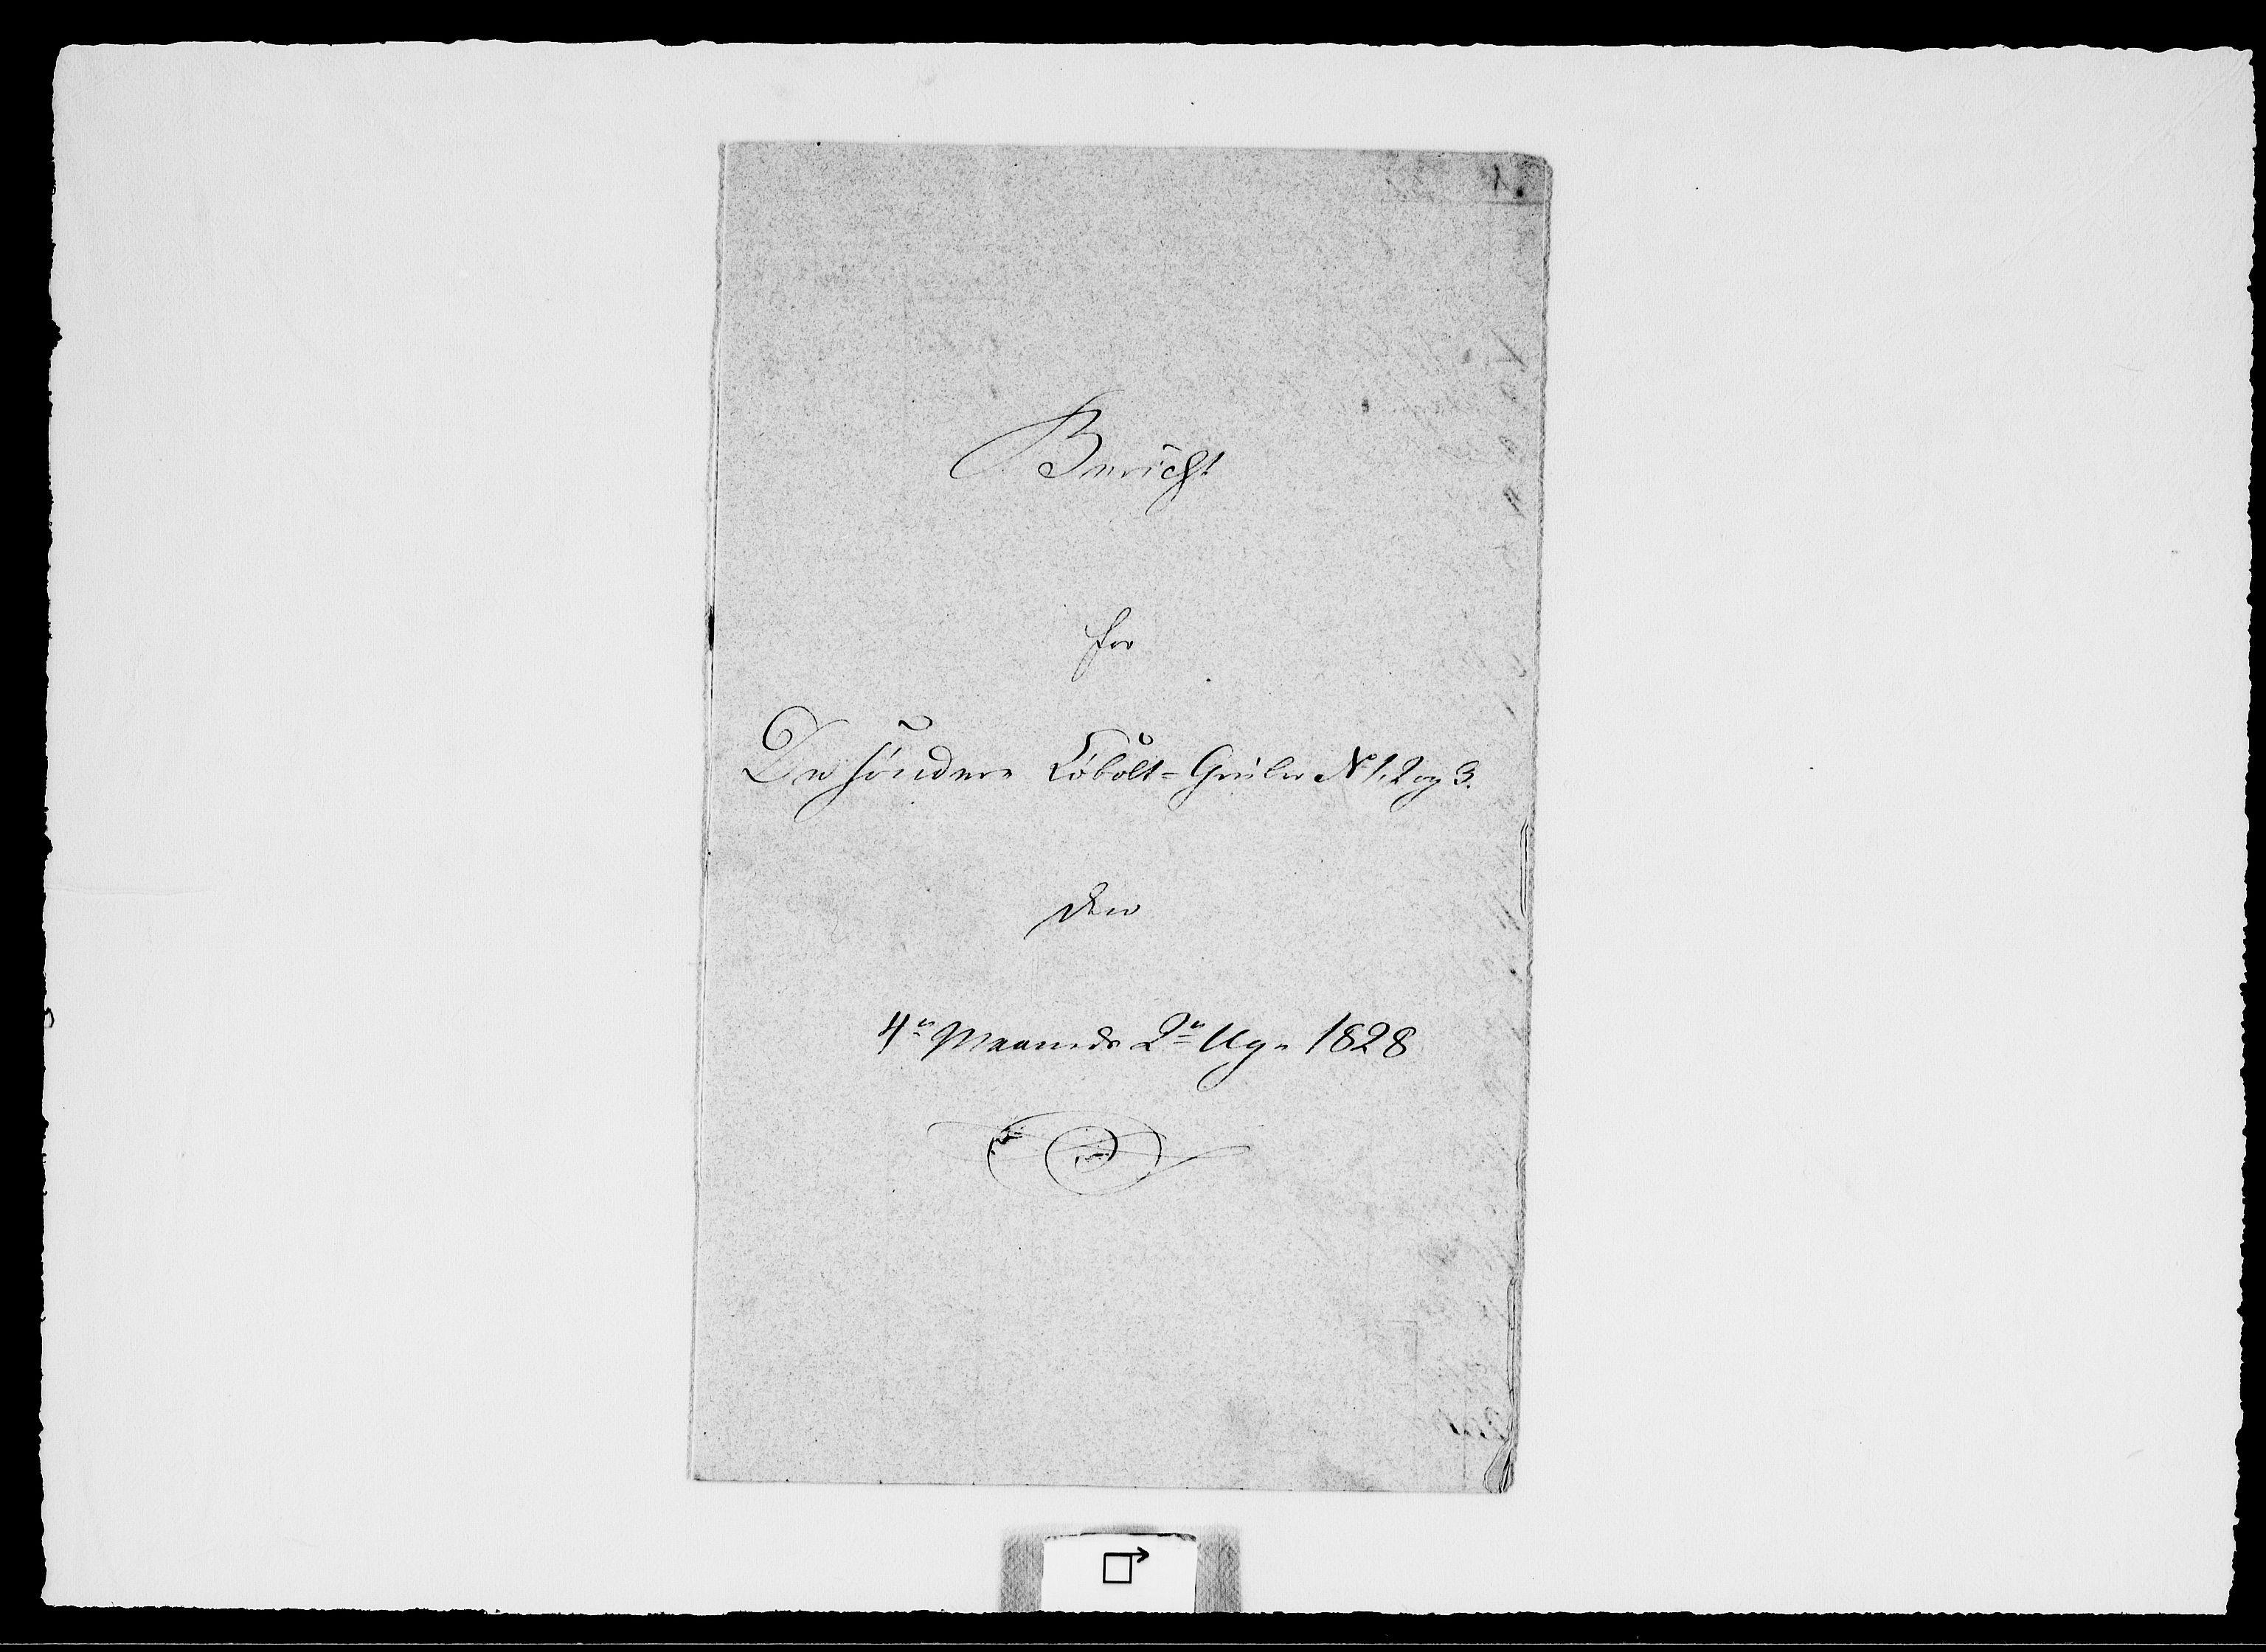 Bericht
for
De söndere Cobolt=Gruber No 1, 2 og 3.
den
4de Maaneds 2de Uge 1828